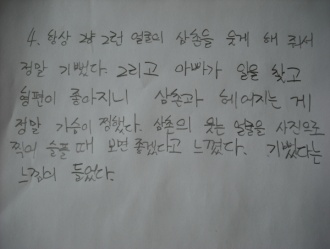 4. 항상 그냥 그런 얼굴이 삼촌을 웃게 해 줘서
정말 기뻤다. 그리고 아빠가 일을 찾고
형편이 좋아지니 삼촌과 헤어지는 게
정말 가슴이 찡했다. 삼촌의 웃는 얼굴을 사진으로
찍어 슬플 때 보면 좋겠다고 느꼈다. 기뻤다는
느낌이 들었다.